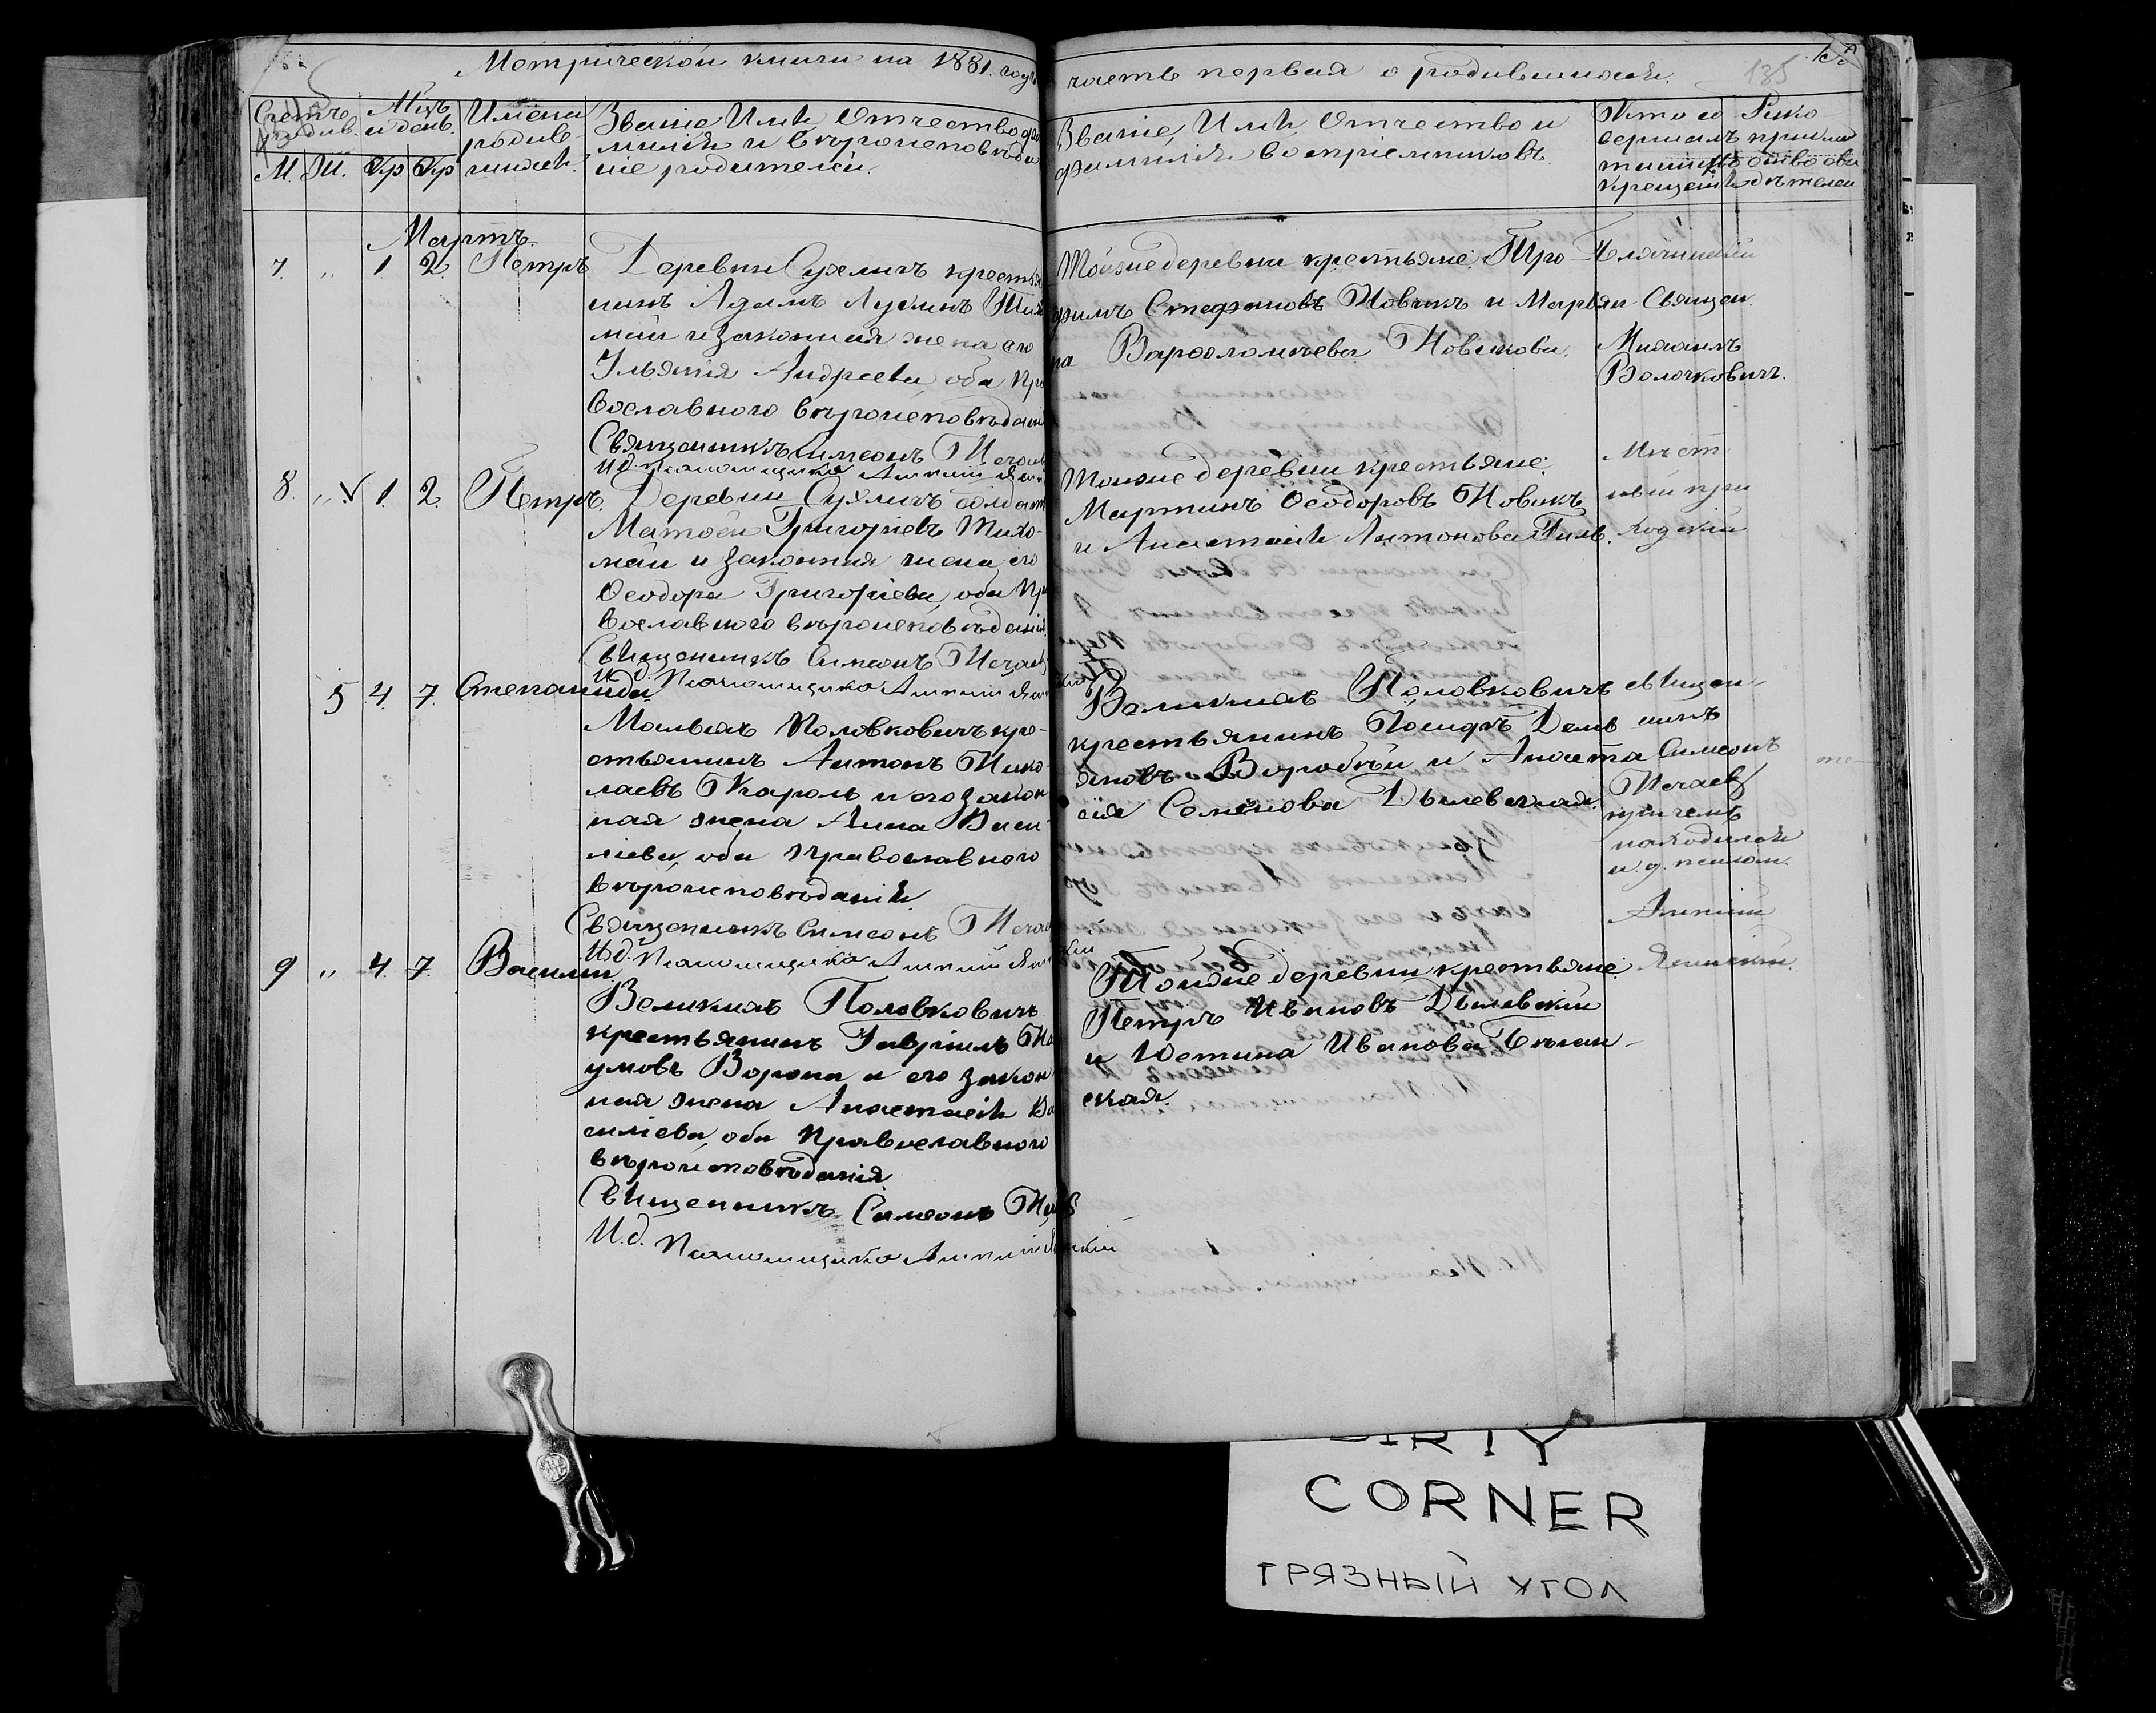 Метрической книги на 1881. годъ
часть первая о родившихся.
135
Счетъ родив.
М. Ж.
Мцъ и день.
Имена родив-
шихся.
Званіе, Имя, Отчество, фа
милія и вѣроисповѣда
ніе родителей.
Званіе, Имя, Отчество и
фамилія воспріемниковъ.
Кто со
вершалъ
таинство
крещенія
Руко
прикла
дство сви
дѣтелей
Мартъ.
7. " 1. 2. Петръ
Деревни Сухличъ крестья
нинъ Адамъ Лукинъ Тихо
май и законная жена его
Ульянія Андреева оба пра
вославного вѣроисповѣданія
Священникъ Симеонъ Нечаев
И. д. Псаломщика
Тойже деревни крестьяне. Тро
фимъ Стефановъ Новикъ и Марья
на Варфоломеева Новикова.
Священ.
Михаилъ
Волочковичъ.
8. " V 1. 2. Петръ.
Деревни Сухличъ солдатъ
Матѳей Григорьевъ Тихо-
май и законная жена его
Ѳеодора Григоріева, оба пра
вославного вѣроисповѣданія.
Священникъ Симеонъ Нечаев
И. д. Псаломщика
Тойже деревни крестьяне.
Мартинъ Ѳеодоровъ Новикъ
и Анастасія Антонова
Мѣст
ный при
ходскій
5 4. 7. Степанида
Малыхъ Половковичъ кре-
стьянинъ Антонъ Нико
лаевъ Кароль и его закон
ная жена Анна Васи-
ліева, оба православного
вѣроисповѣданія.
Священникъ Симеонъ Нечаев
И. д. Псаломщика
Великихъ Половковичъ
крестьянинъ Іосифъ Демь
яновъ Воробѣй и Анаста
сія Семенова Дылевская.
священ-
никъ
Симеонъ
Нечаев
при чемъ
находился
и. д. псалом.
9 " 4. 7. Василій
Великихъ Половковичъ
крестьянинъ Гавріилъ На
умовъ Ворона и его закон
ная жена Анастасія Ва
силіева, оба православного
вѣроисповѣданія.
Священникъ Симеонъ
И. д. Псаломщика
Тойже деревни крестьяне.
Петръ Ивановъ Дылевскій
и Юстина Иванова Бѣган-
ская.
DIRTY
CORNER
ГРЯЗНЫЙ УГОЛ